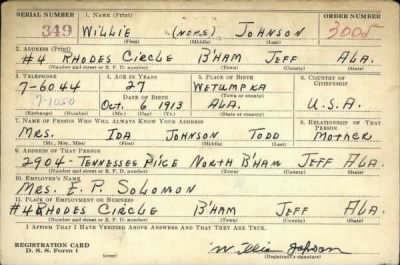 SERIAL NUMBER 1. NAME (Print) ORDER NUMBER
349 WILLIE (NONE) JOHNSON 3005
(First) (Middle) (Last)
2. ADDRESS (Print)
#4 RHODES CIRCLE B'HAM JEFF ALA.
(Number and street or R. F. D. number) (Town) (County) (State)
3. TELEPHONE 4. AGE IN YEARS 5. PLACE OF BIRTH 6. COUNTRY OF CITIZENSHIP
7-6044 27 WETUMPKA
DATE OF BIRTH (Town or county)
7-1050 OCT. 6 1913 ALA. U.S.A.
(Mo.) (Day) (Yr.) (State or country)
7. NAME OF PERSON WHO WILL ALWAYS KNOW YOUR ADDRESS 8. RELATIONSHIP OF THAT PERSON
MRS. IDA JOHNSON TODD MOTHER
(Mr., Mrs., Miss) (First) (Middle) (Last)
9. ADDRESS OF THAT PERSON
2904- TENNESSEE PIKE NORTH B'HAM JEFF ALA.
(Number and street or R. F. D. number) (Town) (County) (State)
10. EMPLOYER'S NAME
MRS. E. P. SOLOMON
11. PLACE OF EMPLOYMENT OR BUSINESS
#4 RHODES CIRCLE B'HAM JEFF ALA.
(Number and street or R. F. D. number) (Town) (County) (State)
I AFFIRM THAT I HAVE VERIFIED ABOVE ANSWERS AND THAT THEY ARE TRUE.
REGISTRATION CARD
D. S. S. Form 1 (over) Willie Johnson
(Registrant's signature)